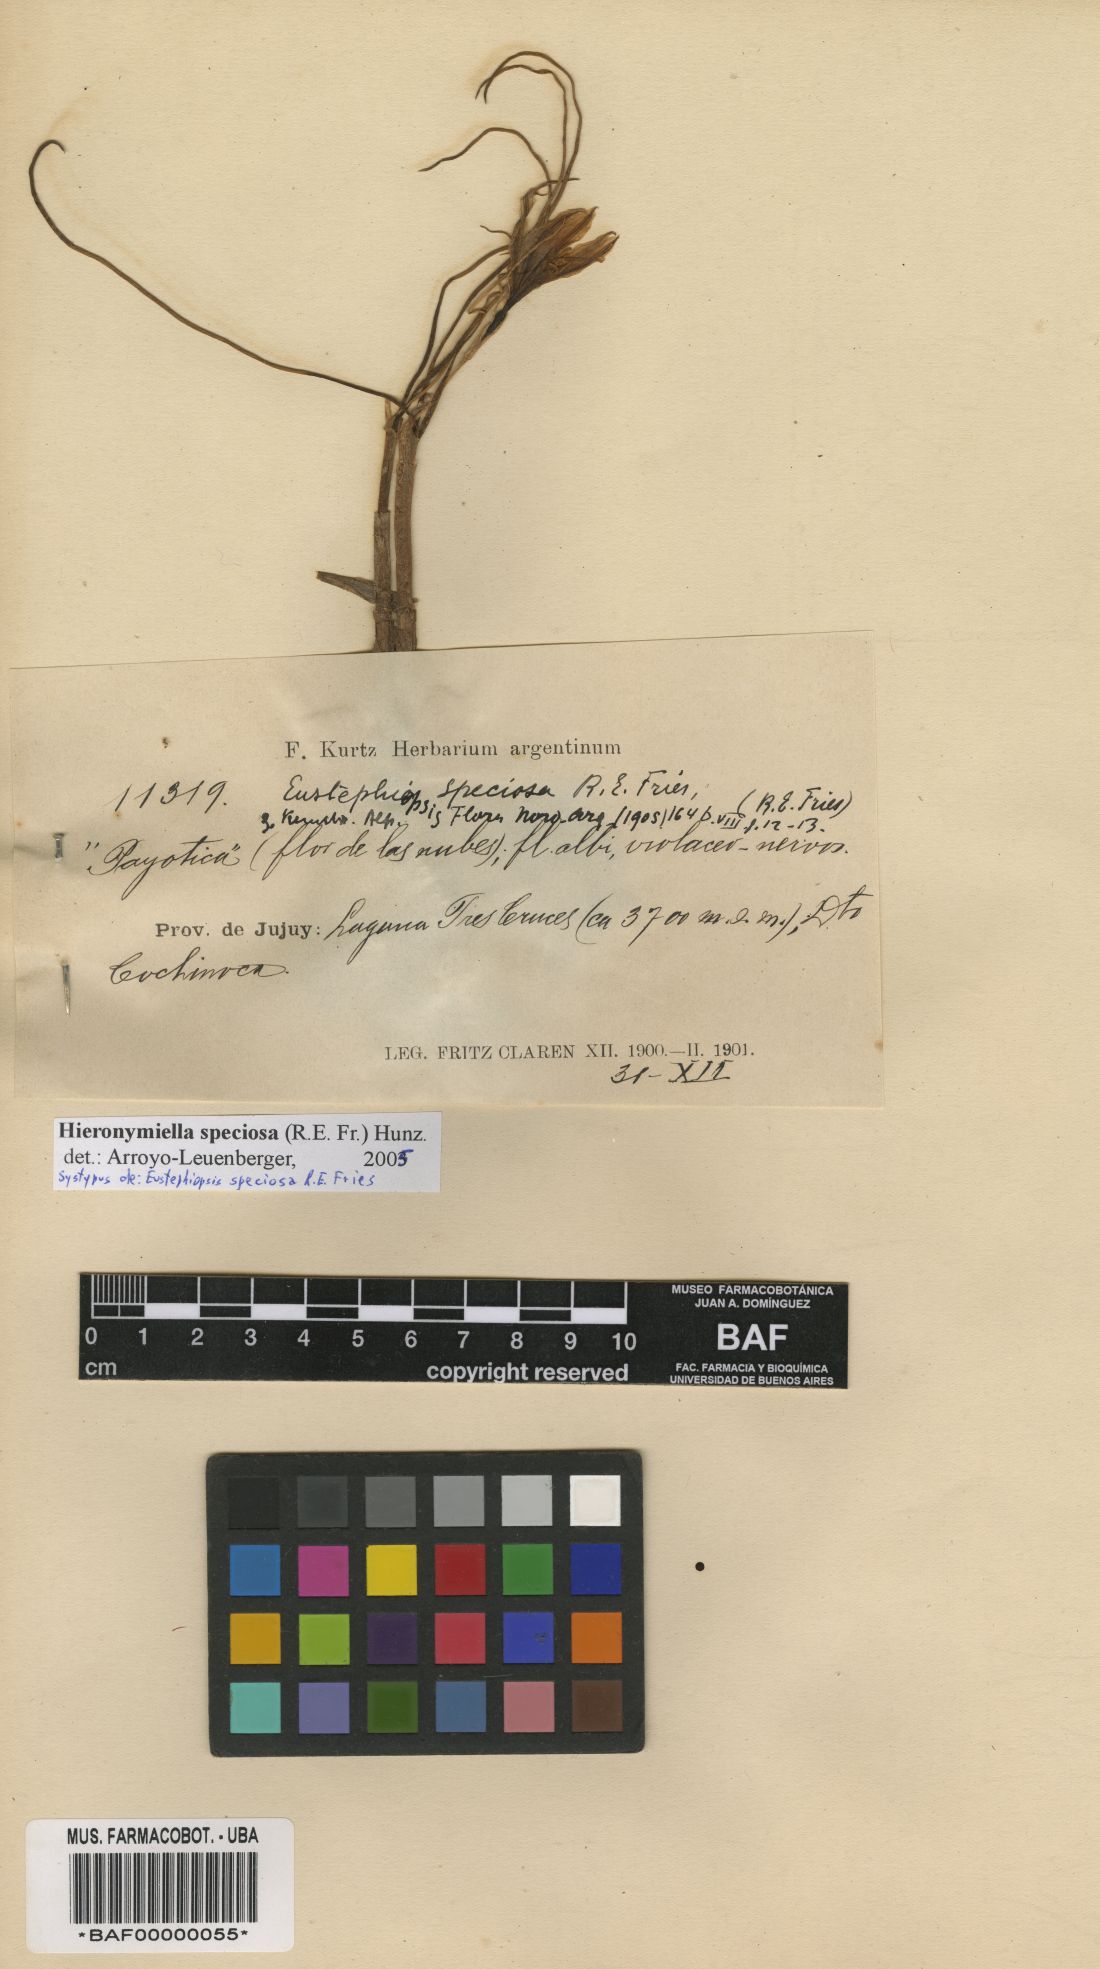 F. Kurtz Herbarium argentinum
11319. Eustephiopsis speciosa R. E. Fries,
z. Kenntn. Alp. Flora Nord-Arg. (1905) 164 p. VIII f. 12-13. (R. E. Fries)
"Payotica" (flor de las nubes); fl. albi, violaceo-nervos.
Prov. de Jujuy: Laguna Tres Cruces (ca 3700 m. s. m.), Dto
Cochinoca.
LEG. FRITZ CLAREN XII. 1900.—II. 1901.
31-XII
Hieronymiella speciosa (R.E. Fr.) Hunz.
det.: Arroyo-Leuenberger, 2005
Systypus de: Eustephiopsis speciosa R.E. Fries
0 1 2 3 4 5 6 7 8 9 10
cm copyright reserved
MUSEO FARMACOBOTÁNICA
JUAN A. DOMÍNGUEZ
BAF
FAC. FARMACIA Y BIOQUÍMICA
UNIVERSIDAD DE BUENOS AIRES
MUS. FARMACOBOT. - UBA
*BAF00000055*